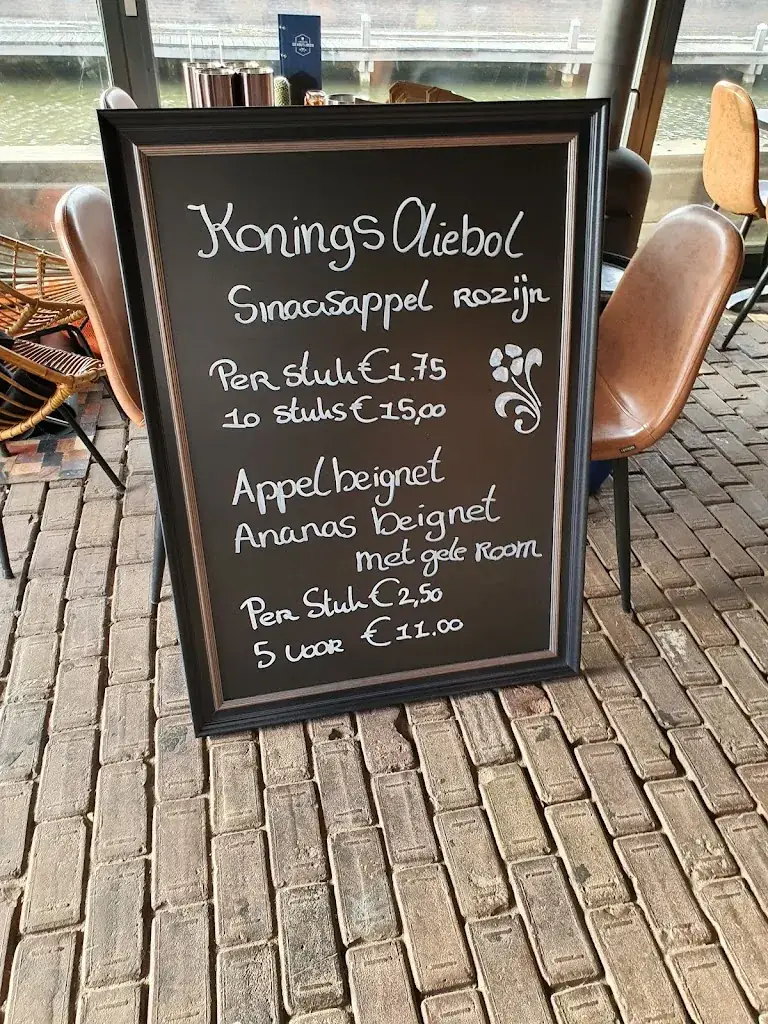 Konings Oliebol
Sinaasappel Rozijn
Per stuk € 1.75
10 stuks € 15,00
Appelbeignet
Ananas beignet
met gele Room
Per Stuk € 2,50
5 voor € 11.00